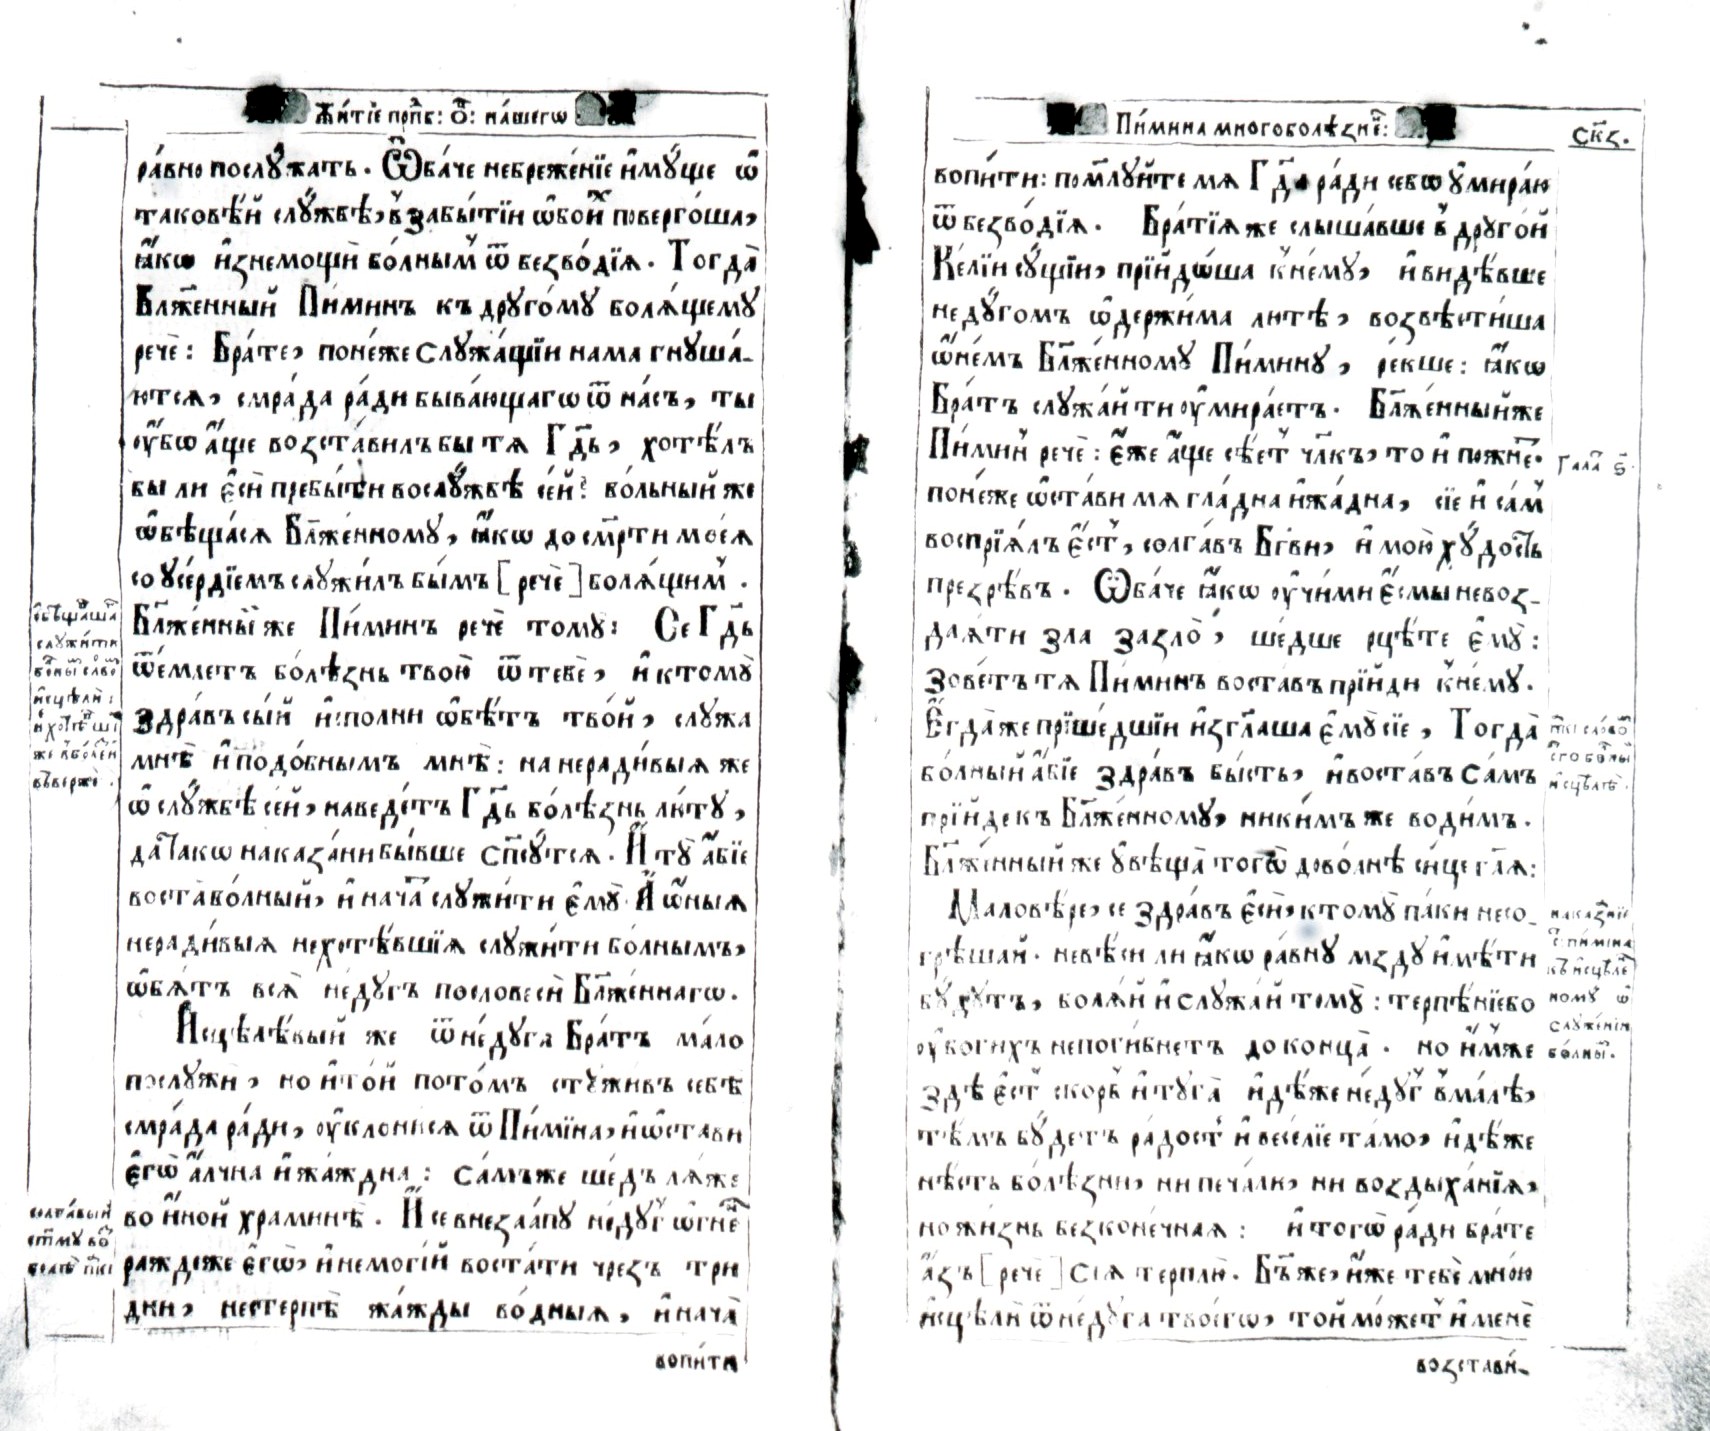 Житїе прпб: Ѻ: на́шегѡ
ра́вно послꙋ́жать. Ѽба́че небреже́нїе и҆мꙋ́ще ѡ҆
таковѣ́й слꙋ́жбѣ, в̾ забы́тїи ѡ҆бои̾х поверго́ша,
ꙗ҆́кѡ и҆знемощѝ бо́лным̾ ѿ безво́дїѧ. Тогда̀
Бл҃же́нный Пи́минъ къ дрꙋго́мꙋ болѧ́щемꙋ
речѐ: Бра́те, поне́же слꙋжа́щїи нама гнꙋша́-
ютсѧ, смра́да ра́ди быва́ющагѡ ѿ на́съ, ты
ᲂу҆́бѡ а҆́ще возста́вилъ бы тѧ Гдⷭ҇ь, хотѣ́лъ
бы ли є҆сѝ пребы́ти во слꙋ́жбѣ се́й? бо́льный же
ѡ҆бѣща́сѧ Бл҃же́нномꙋ, ꙗ҆́кѡ до сме́рти моеѧ̀
со ᲂусе́рдїемъ слꙋжи́лъ бы́мъ [речѐ] болѧ́щим̾.
Бл҃же́нный же Пи́минъ речѐ томꙋ̀: Се Гдⷭ҇ь
ѿе́млетъ болѣ́знь твою̀ ѿ тебѐ, и҆ ктомꙋ̀
здра́въ сы́й и҆спо́лни ѡ҆бѣ́тъ тво́й, слꙋжа̀
мнѣ̀ и҆ подо́бнымъ мнѣ̀: на неради́выѧ же
ѡ҆ слꙋ́жбѣ се́й, наведе́тъ Гдⷭ҇ь болѣ́знь лю́тꙋ,
да ꙗ҆́кѡ наказа́ни бы́вше спⷭ҇ꙋ́тсѧ. И҆ тꙋ̀ а҆́бїе
воста̀ бо́лный, и҆ нача̀ слꙋжи́ти є҆мꙋ̀. А҆ ѡ҆́ныѧ
неради́выѧ нехотѣ́вшїѧ слꙋжи́ти бо́лнымъ,
ѡ҆б̾ѧ́тъ всѧ̀ недꙋ́гъ по словесѝ Бл҃же́ннагѡ.
И҆сцѣлѣ́вый же ѿ недꙋ́га Бра́тъ ма́ло
послꙋжѝ, но и҆ то́й пото́мъ стꙋжи́въ себѣ̀
смра́да ра́ди, ᲂу҆клони́сѧ ѿ Пи́мїна, и҆ ѡ҆ста́ви
є҆гѡ̀ а҆́лчна и҆ жа́ждна: са́мъже ше́дъ лѧ́же
во и҆́ной хра́минѣ. И҆ се внеза́апꙋ недꙋ́г̾ ѻ҆́гне́н̾
раждеже є҆гѡ̀, и҆ немогі́й воста́ти чрезъ три
дни, нестерпѣ̀ жа́жды во́дныѧ, и҆ нача̀
вопи́ти
ѡ҆бѣща́шасѧ
слꙋжи́ти
и҆сцѣлѝ:
въве́рже.
солга́вый
Пи́мина многоболѣ́зне́н̾:
Ск҃з.
вопи́ти: поми́лꙋйте мѧ Гдⷭ҇а ра́ди се бѡ ᲂу҆мира́ю
ѿ безво́дїѧ. Бра́тїѧ же слыша́вше в̾ дрꙋго́й
Ке́лїи сꙋ́щїи, прїидо́ша к̾ не́мꙋ, и҆ ви́дѣвше
недꙋ́гомъ ѡ҆держи́ма лю́тѣ, возвѣсти́ша
ѡ҆ не́мъ Бл҃же́нномꙋ Пи́минꙋ, ре́кше: ꙗ҆́кѡ
Бра́тъ слꙋжа́й ти ᲂу҆мира́етъ. Бл҃же́нный же
Пи́мин̾ речѐ: є҆́же а҆́ще сѣ́ет̾ чл҃къ, то и҆ пожне́т̾.
поне́же ѡ҆ста́ви мѧ гла́дна и҆ жа́дна, сїе и҆ са́м̾
воспрїѧ́лъ є҆́ст̾, солга́въ Бг҃ви, и҆ мою̀ хꙋ́дость
презрѣ́въ. Ѽба́че ꙗ҆́кѡ ᲂу҆чи́ми є҆смы̀ невоз-
даѧ́ти зла за зло̀, ше́дше рцѣ́те є҆мꙋ̀:
зове́тъ тѧ Пи́минъ воста́въ прїйди к̾ не́мꙋ.
Є҆гда́ же прїше́дшїи и҆згл҃аша є҆мꙋ̀ сїе, Тогда̀
бо́лный а҆́бїе здра́въ бы́сть, и҆ воста́въ са́мъ
прїйде къ Бл҃же́нномꙋ, ники́мъ же води́мъ.
Бл҃же́нный же ᲂу҆вѣща̀ тогѡ̀ дово́лнѣ си́це гл҃ѧ:
Малові́ре, се здра́въ є҆сѝ, ктомꙋ̀ па́ки несо-
грѣша́й. невѣ́си ли ꙗ҆́кѡ ра́внꙋ мздꙋ̀ и҆мѣ́ти
бꙋ́дꙋтъ, болѧ́й и҆ слꙋжа́й томꙋ̀: терпѣ́нїе бо
ᲂу҆бо́гихъ непоги́бнетъ до конца̀. но и҆́м̾же
здѣ̀ є҆́ст̾ ско́рбь и҆ тꙋга̀ и҆дѣ́же недꙋ́г̾ в̾ма́лѣ,
тѣ́мъ бꙋ́детъ ра́дост̾ и҆ весе́лїе та́мо, и҆дѣ́же
нѣ́сть болѣ́зни, ни печа́ли, ни воздыха́нїѧ,
но жи́знь безконе́чнаѧ: и҆ тогѡ̀ ра́ди бра́те
а҆́зъ [речѐ] сїѧ̀ терплю̀. Бг҃ъ же, и҆́же тебѐ мно́ю
и҆сцѣлѝ ѿ недꙋ́га твоегѡ̀, то́й мо́жет̾ и҆ менѐ
возстави́-
Гала̑ ѕ҃.
и҆сцѣлѣ̀.
наказа́нїе
ст҃: пи́мина
къ и҆сцѣле́н̾
номꙋ̀ ѡ҆
слꙋже́нїи
бо́лны̑.